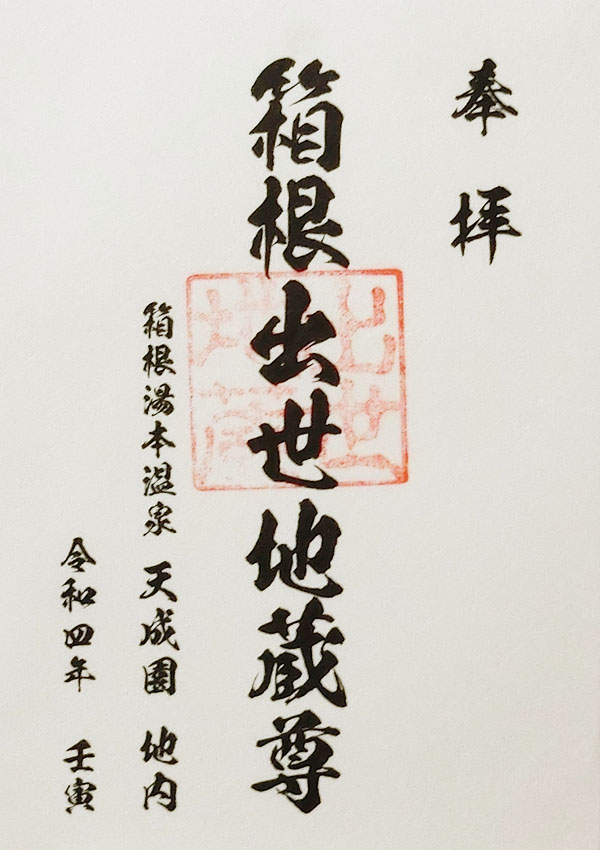 奉拝
箱根出世地蔵尊
出世
地蔵
箱根湯本温泉 天成園 地内
令和四年 壬寅